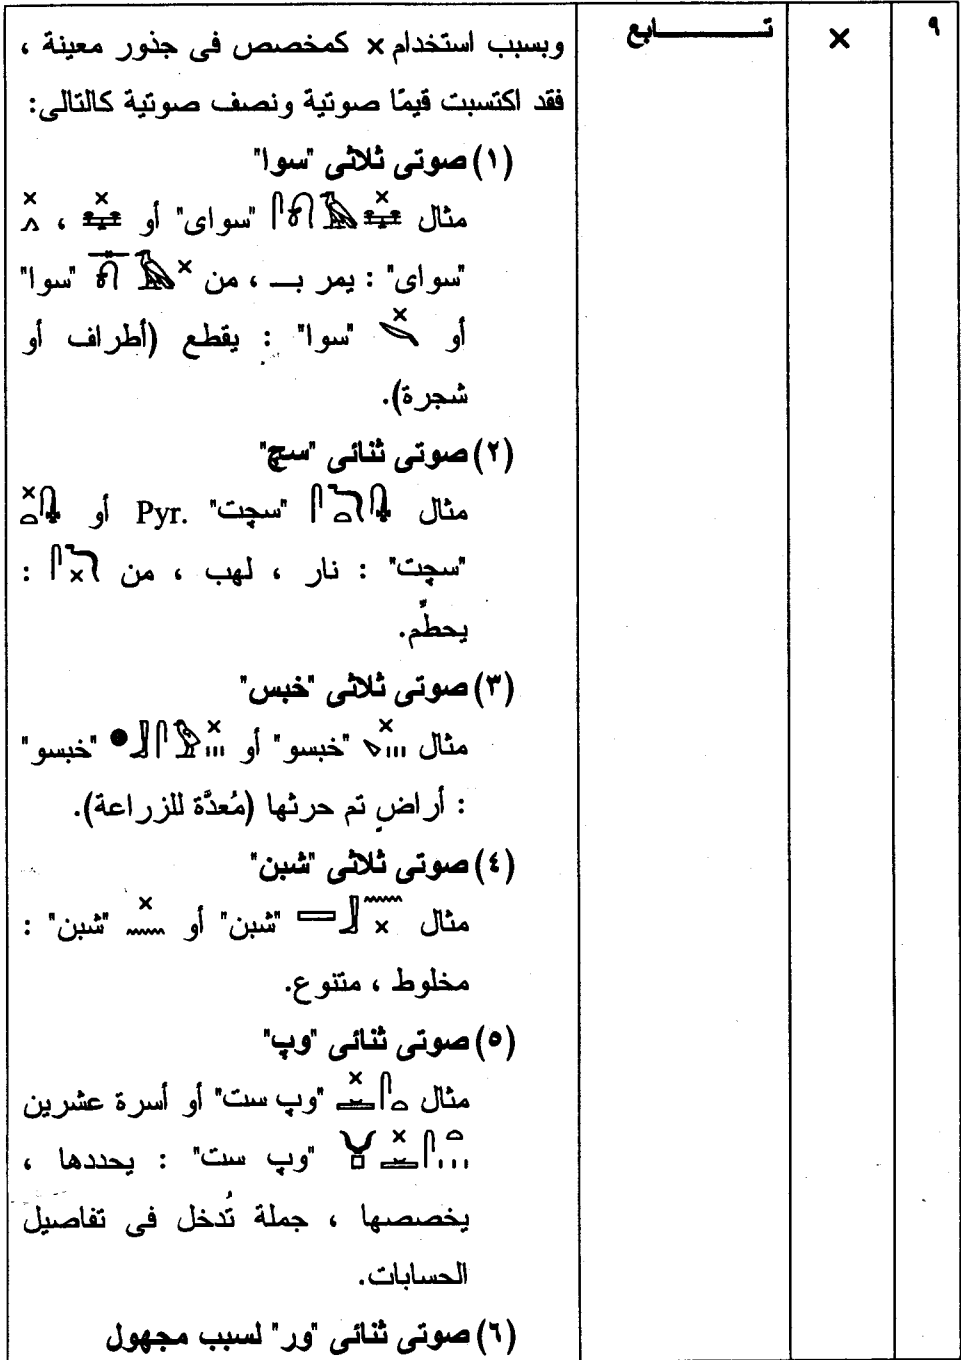 ٩
×
تـــــــابع
وبسبب استخدام × كمخصص فى جذور معينة ،
فقد اكتسبت قيمًا صوتية ونصف صوتية كالتالى:
(١) صوتى ثلاثى "سوا"
مثال "سواى" أو ،
"سواى" : يمر بـــ ، من "سوا"
أو "سوا" : يقطع (أطراف أو
شجرة).
(٢) صوتى ثنائى "سچ"
مثال "سچت" Pyr. أو
"سچت" : نار ، لهب ، من :
يحطِّم.
(٣) صوتى ثلاثى "خبس"
مثال "خبسو" أو "خبسو"
: أراضٍ تم حرثها (مُعدَّة للزراعة).
(٤) صوتى ثلاثى "شبن"
مثال "شبن" أو "شبن" :
مخلوط ، متنوع.
(٥) صوتى ثنائى "وپ"
مثال "وپ ست" أو أسرة عشرين
"وپ ست" : يحددها ،
يخصصها ، جملة تُدخل فى تفاصيل
الحسابات.
(٦) صوتى ثنائى "ور" لسبب مجهول